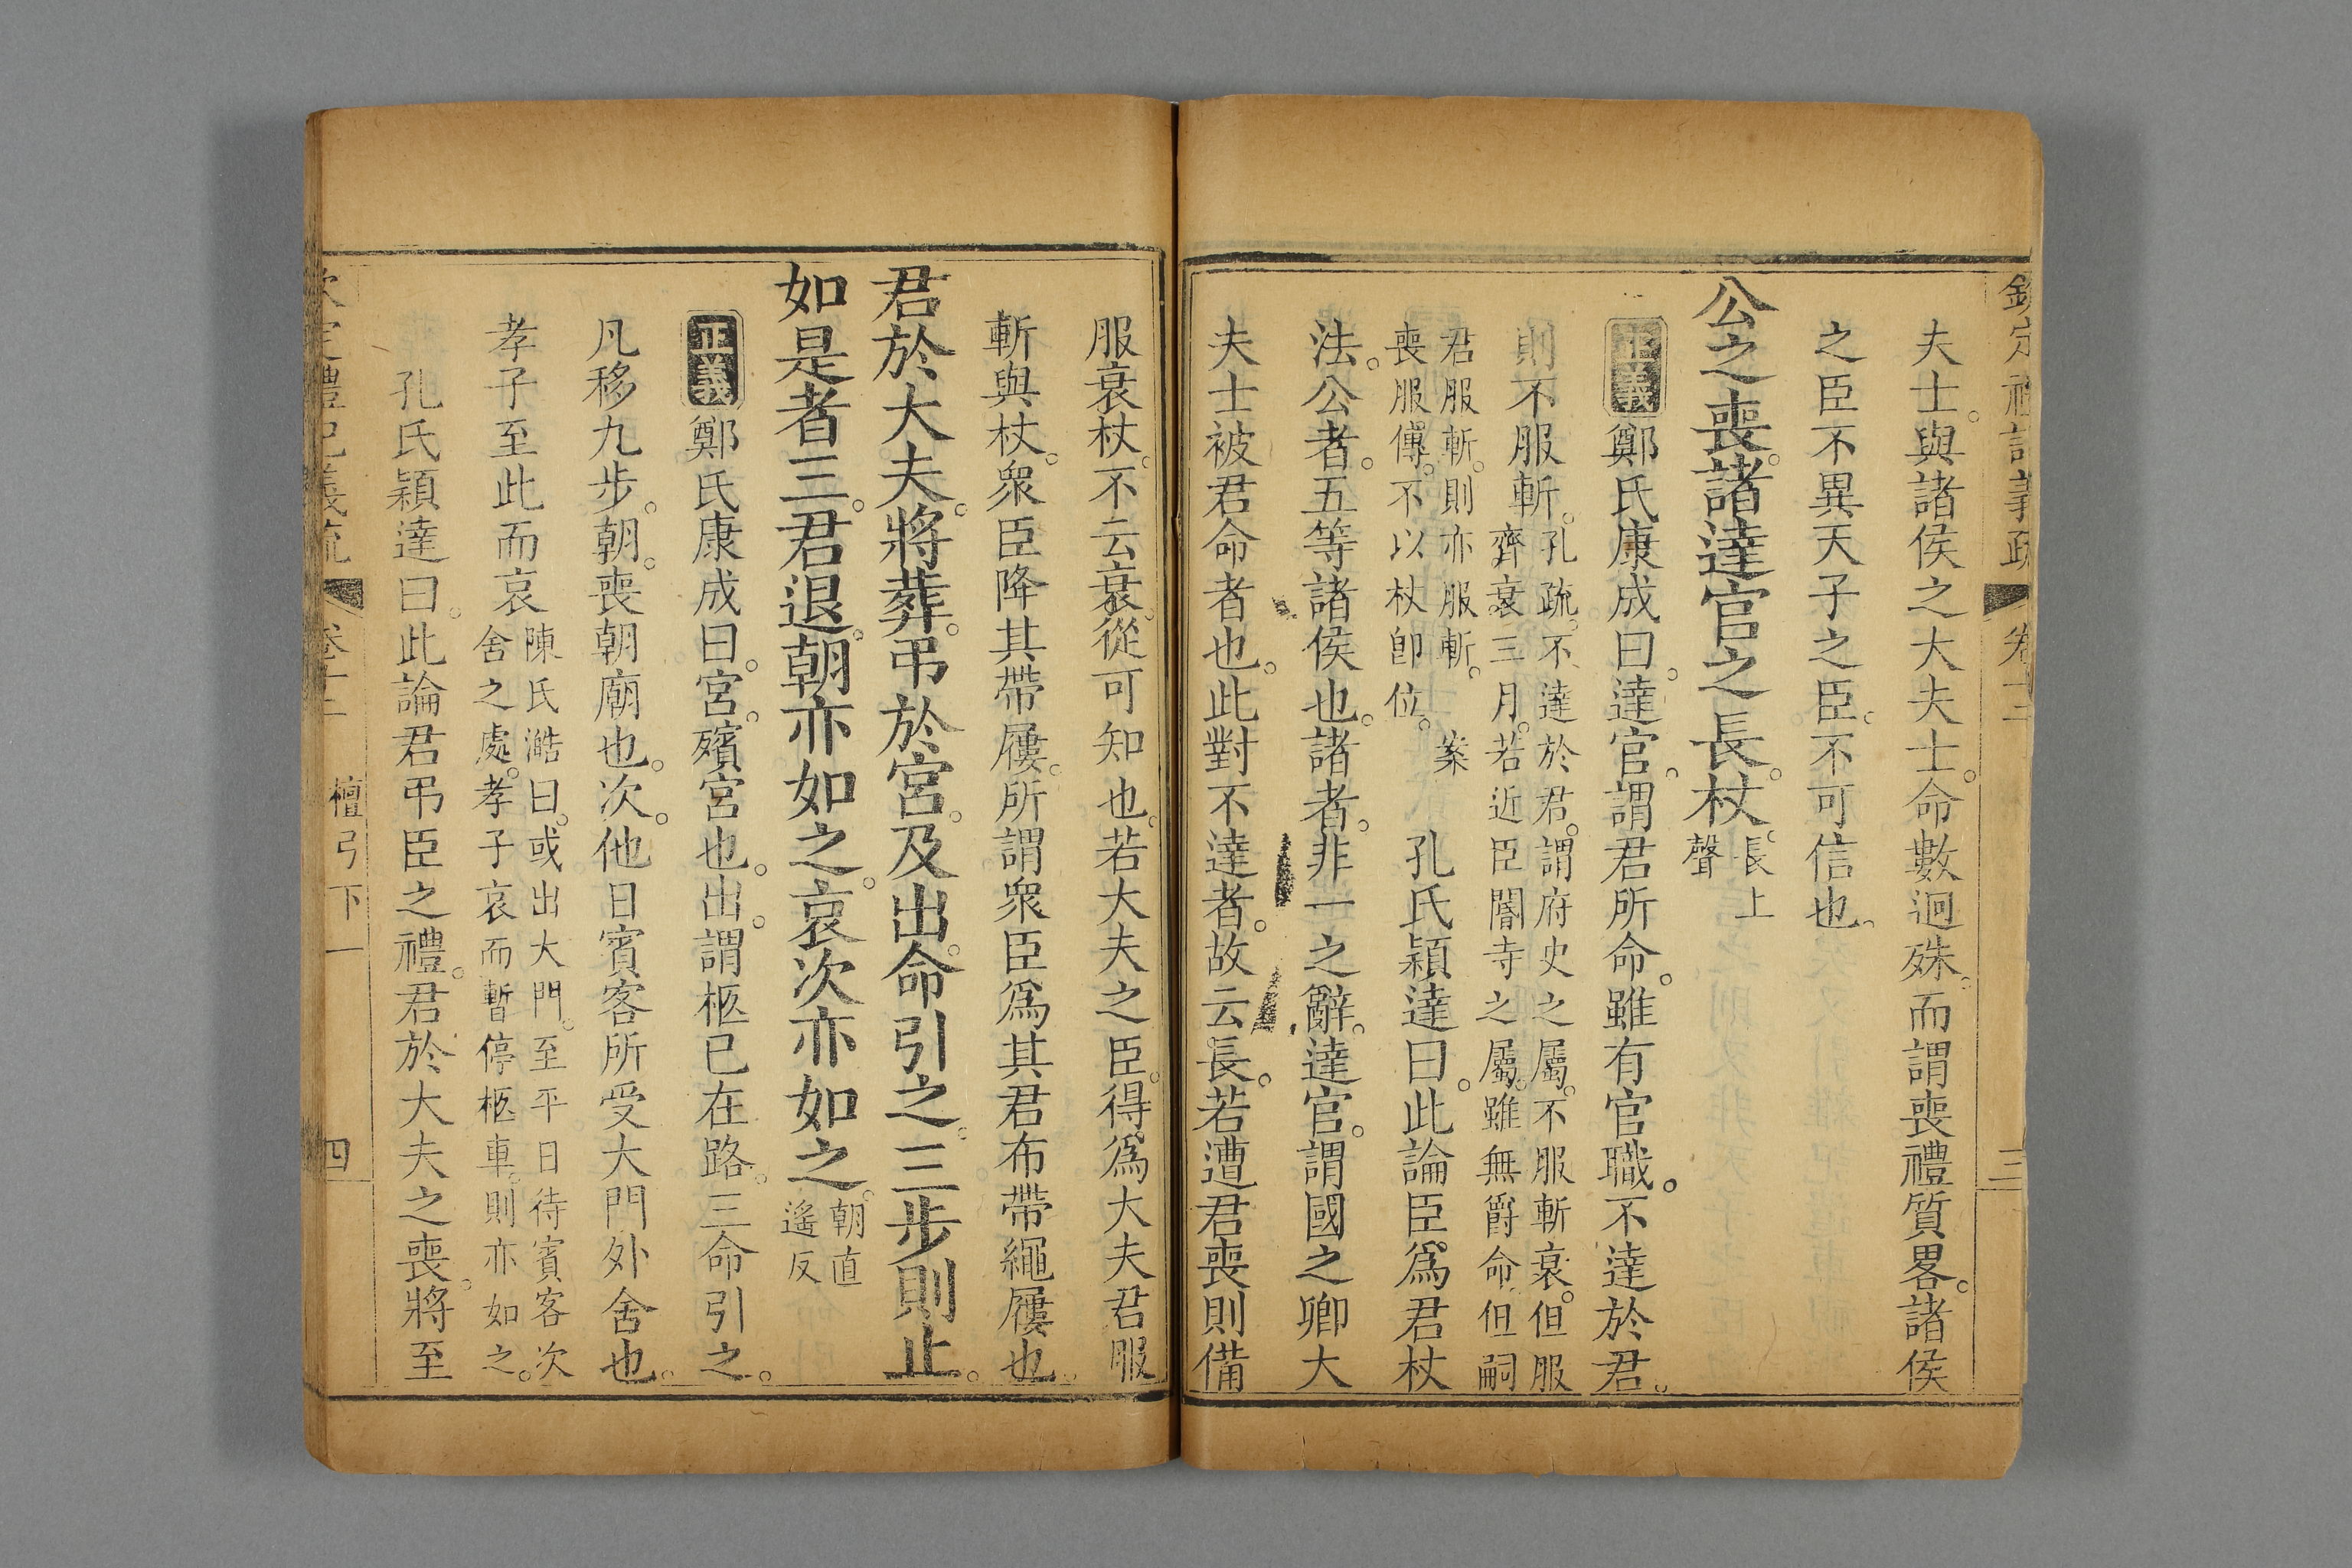 欽定禮記義疏 卷十二 三
夫士。與諸侯之大夫士。命數迥殊。而謂喪禮質畧。諸侯
之臣不異天子之臣。不可信也。
公之喪。諸達官之長。杖。長上聲
正義 鄭氏康成曰。達官。謂君所命。雖有官職。不達於君。
則不服斬。孔疏。不達於君。謂府史之屬。不服斬衰。但服齊衰三月。若近臣閽寺之屬。雖無爵命。但嗣
君服斬。則亦服斬。案喪服傳。不以杖卽位。孔氏穎達曰。此論臣爲君杖
法。公者。五等諸侯也。諸者。非一之辭。達官。謂國之卿大
夫士被君命者也。此對不達者。故云長。若遭君喪則備
服衰杖。不云衰。從可知也。若大夫之臣。得爲大夫君服
斬與杖。衆臣降其帶屨。所謂衆臣爲其君布帶繩屨也。
君於大夫。將葬。弔於宮。及出。命引之。三步則止。
如是者三。君退。朝亦如之。哀次亦如之。朝直遙反
正義 鄭氏康成曰。宮。殯宮也。出。謂柩已在路。三命引之。
凡移九步。朝。喪朝廟也。次。他日賓客所受大門外舍也。
孝子至此而哀。陳氏澔曰。或出大門。至平日待賓客次舍之處。孝子哀而暫停柩車。則亦如之。
孔氏穎達曰。此論君弔臣之禮。君於大夫之喪。將至
欽定禮記義疏 卷十二 檀弓下一 四